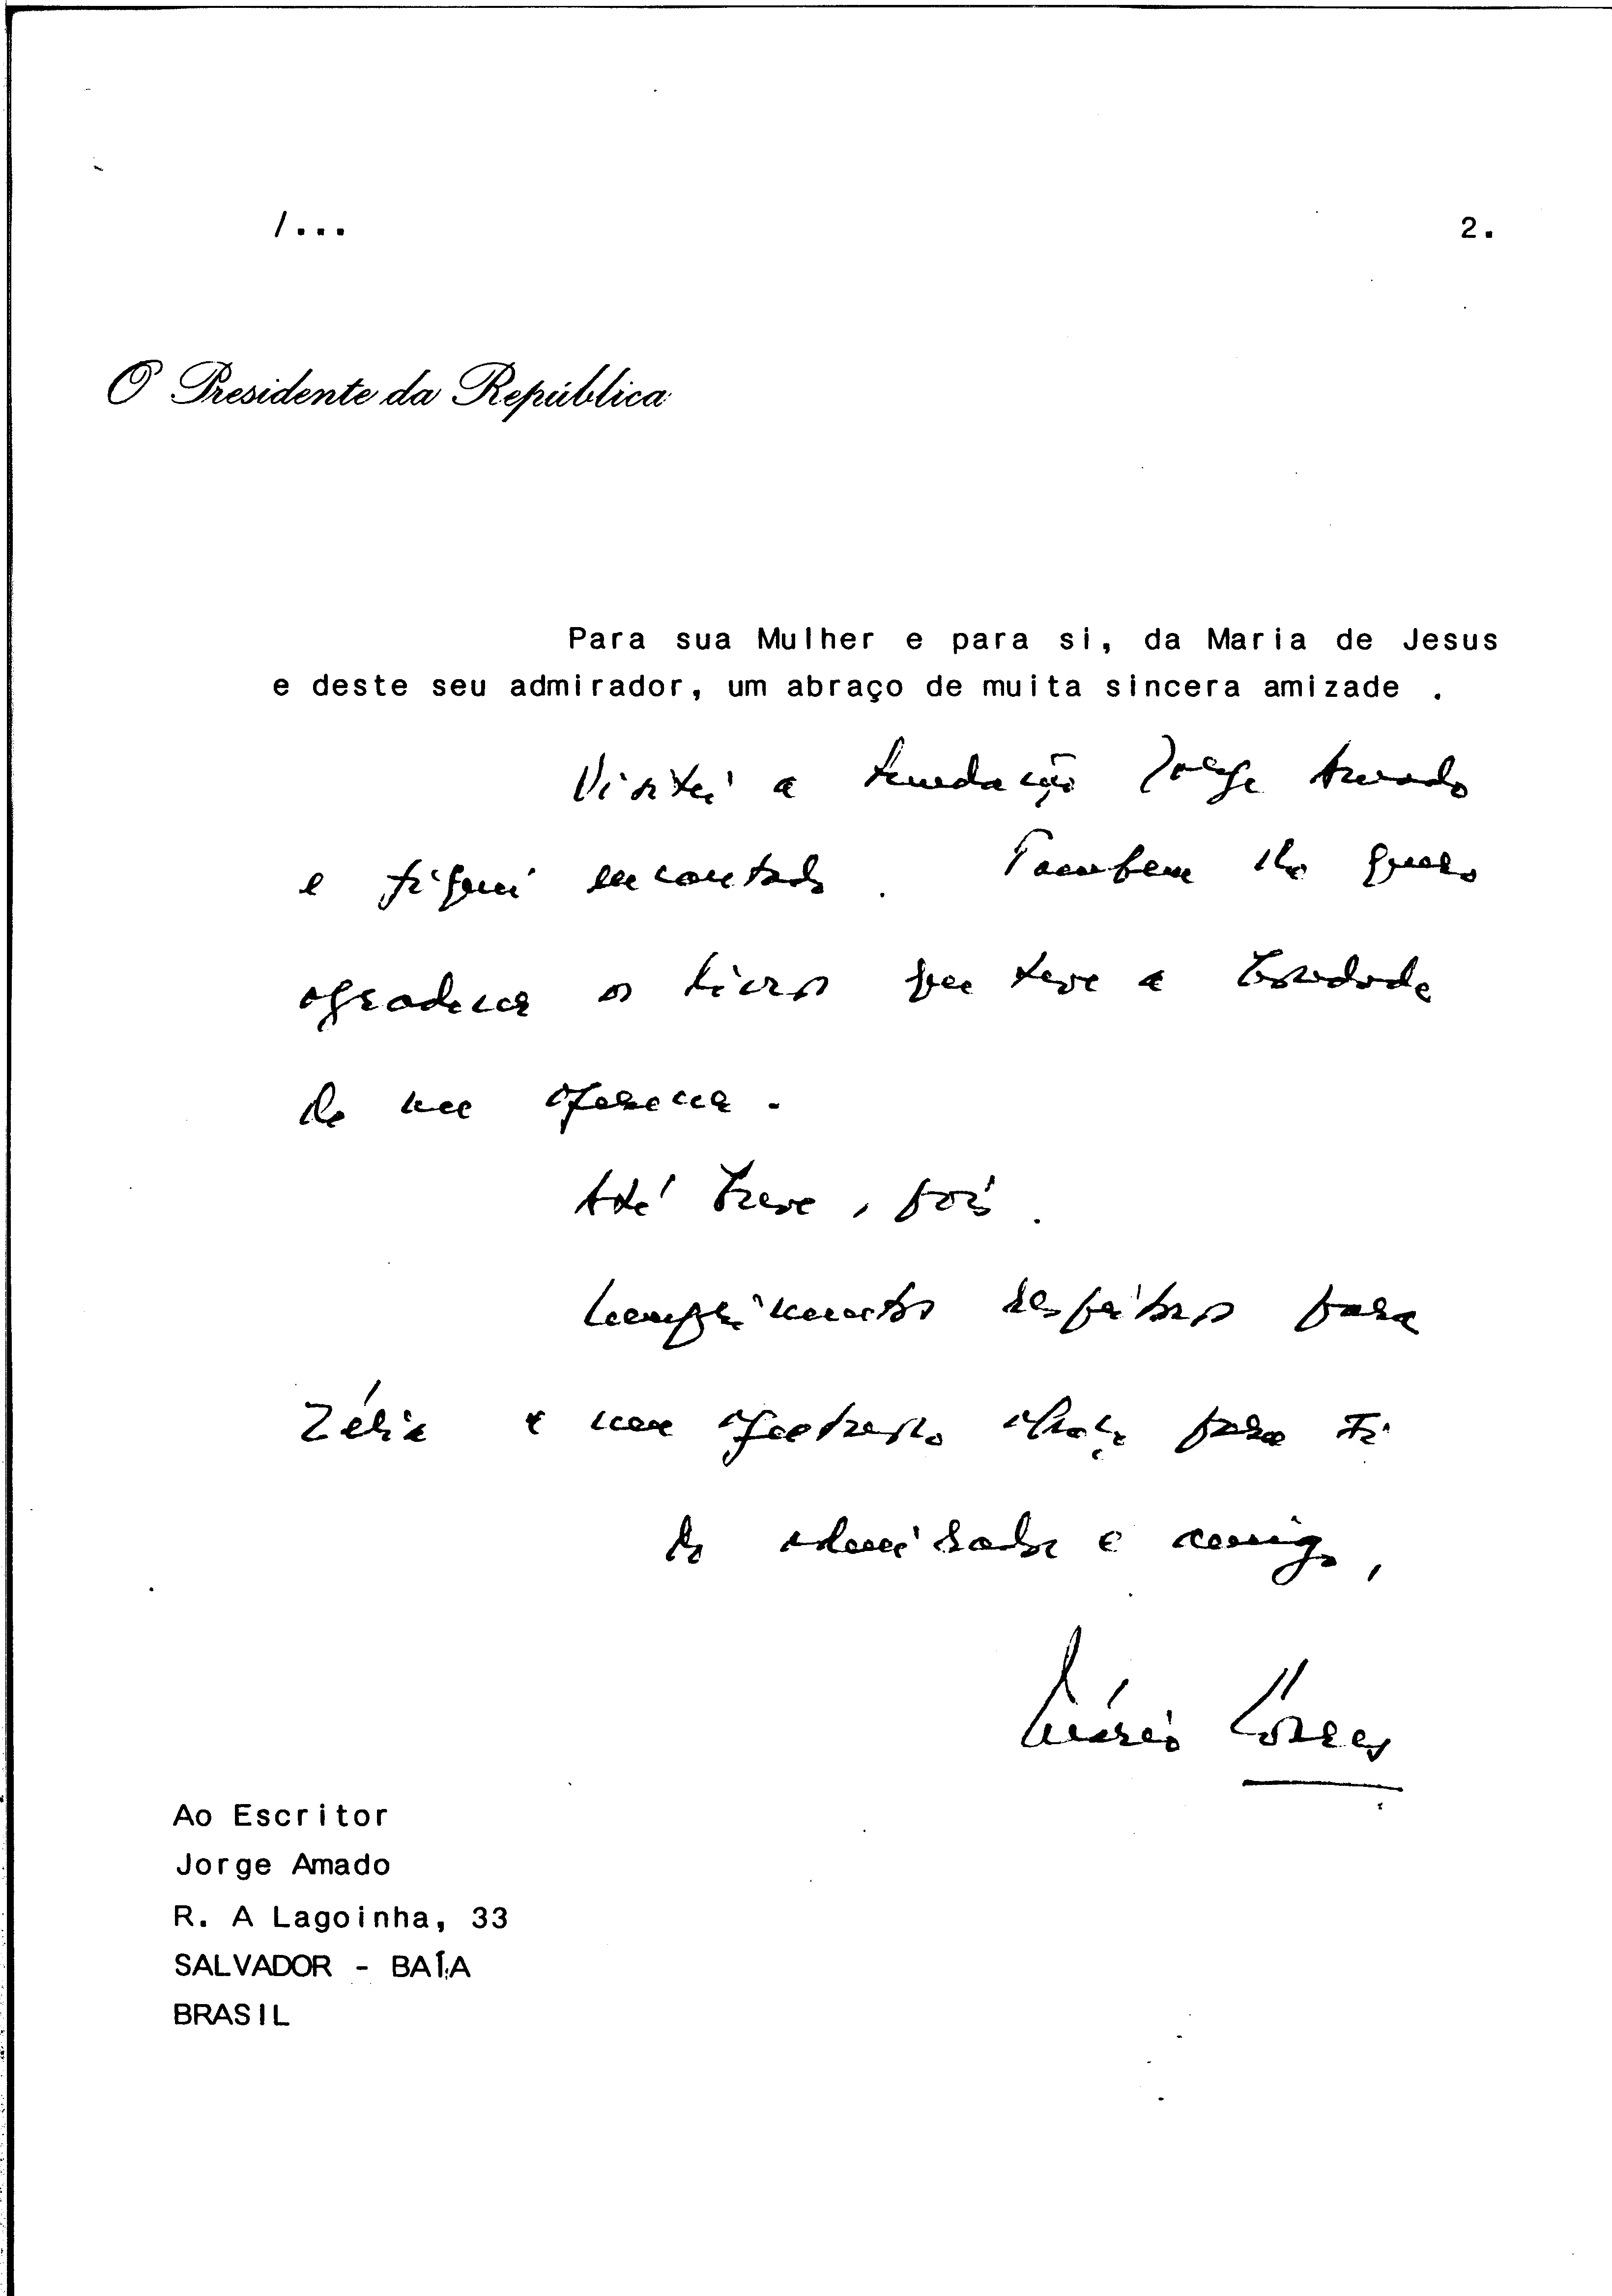 /...
2.
O Presidente da República
Para sua Mulher e para si, da Maria de Jesus
e deste seu admirador, um abraço de muita sincera amizade .
Visitei a Fundação Jorge Amado
e fiquei encantado . Também lhe quero
agradecer os livros que teve a bondade
de me oferecer .
Até breve , pois .
Cumprimentos respeitosos para
Zélia e um afectuoso abraço para si
do admirador e amigo ,
Mário Soares
Ao Escritor
Jorge Amado
R. A Lagoinha, 33
SALVADOR - BAÍA
BRASIL